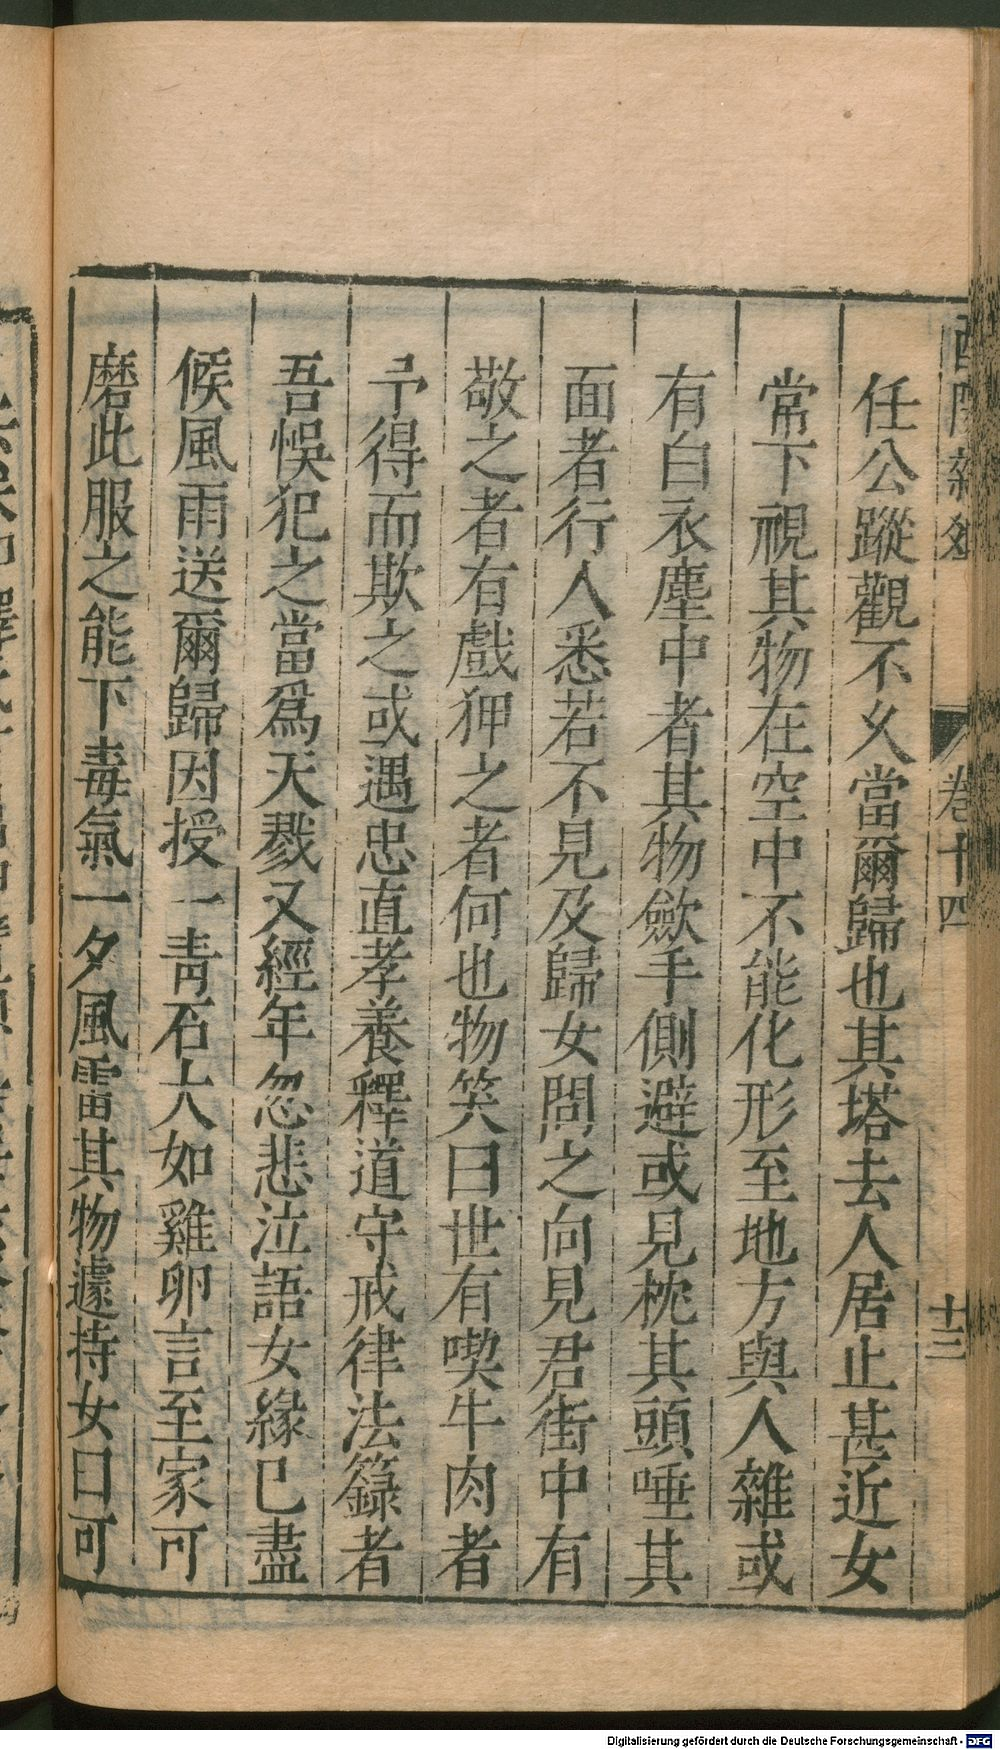 任公蹤觀不乆當爾歸也其塔去人居止甚近女
常下視其物在空中不能化形至地方與人雜或
有白衣塵中者其物歛手側避或見枕其頭唾其
面者行人悉若不見及歸女問之向見君街中有
敬之者有戲狎之者何也物笑曰世有喫牛肉者
予得而欺之或遇忠直孝養釋道守戒律法籙者
吾悞犯之當爲天戮又經年忽悲泣語女緣已盡
候風雨送爾歸因授一青石大如雞卵言至家可
磨此服之能下毒氣一夕風雷其物遽持女曰可
卷十四
十三
Digitalisierung gefördert durch die Deutsche Forschungsgemeinschaft - DFG